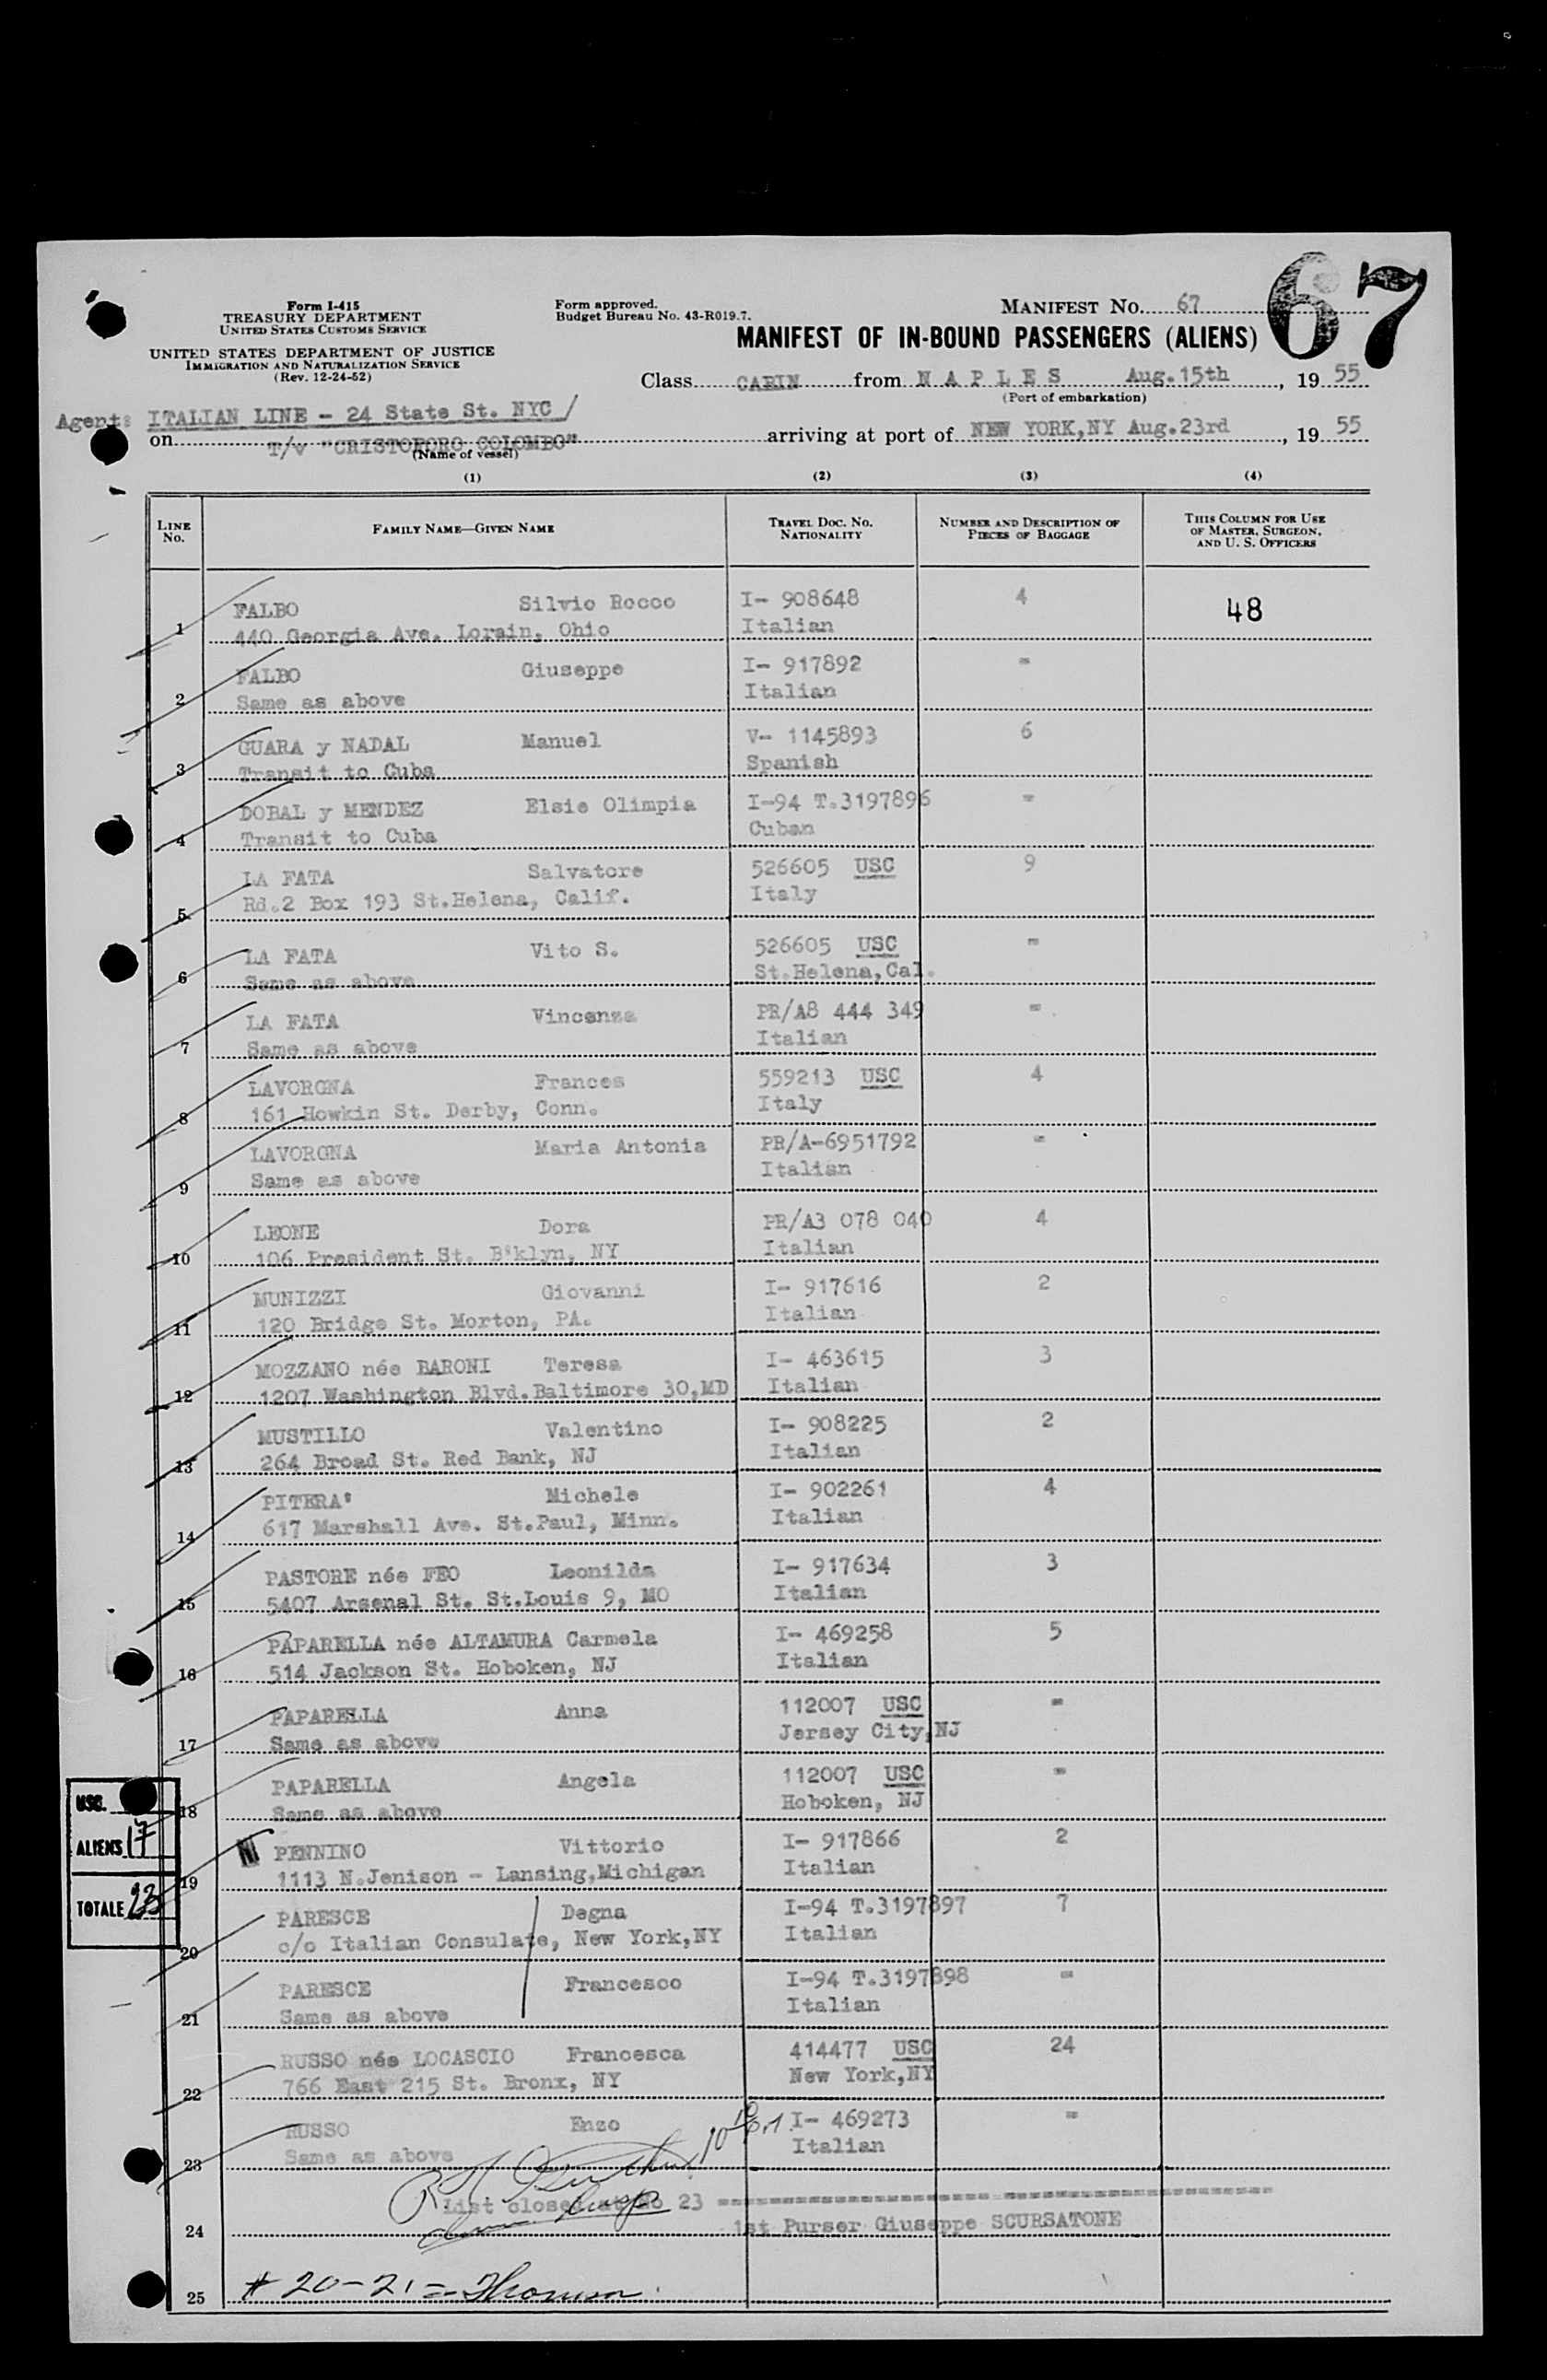 67
Form I-415
TREASURY DEPARTMENT
UNITED STATES CUSTOMS SERVICE
UNITED STATES DEPARTMENT OF JUSTICE
IMMIGRATION AND NATURALIZATION SERVICE
(Rev. 12-24-52)
Form approved.
Budget Bureau No. 43-R019.7.
MANIFEST NO. 67
MANIFEST OF IN-BOUND PASSENGERS (ALIENS)
Class CABIN from N A P L E S Aug.15th, 19 55
(Port of embarkation)
Agent: ITALIAN LINE - 24 State St. NYC /
on T/v "CRISTOFORO COLOMBO" arriving at port of NEW YORK,NY Aug.23rd, 19 55
(Name of vessel)
(1) (2) (3) (4)
LINE NO. FAMILY NAME—GIVEN NAME TRAVEL DOC. NO. NATIONALITY NUMBER AND DESCRIPTION OF PIECES OF BAGGAGE THIS COLUMN FOR USE OF MASTER, SURGEON, AND U. S. OFFICERS
1 FALBO Silvio Rocco I- 908648 4 48
440 Georgia Ave. Lorain, Ohio Italian
2 FALBO Giuseppe I- 917892 "
Same as above Italian
3 GUARA y NADAL Manuel V- 1145893 6
Transit to Cuba Spanish
4 DOBAL y MENDEZ Elsie Olimpia I-94 T.3197896 "
Transit to Cuba Cuban
5 LA FATA Salvatore 526605 USC 9
Rd.2 Box 193 St.Helena, Calif. Italy
6 LA FATA Vito S. 526605 USC "
Same as above St.Helena,Cal.
7 LA FATA Vincenza PR/A8 444 349 "
Same as above Italian
8 LAVORGNA Frances 559213 USC 4
161 Howkin St. Derby, Conn. Italy
9 LAVORGNA Maria Antonia PR/A-6951792 "
Same as above Italian
10 LEONE Dora PR/A3 078 040 4
106 President St. B'klyn, NY Italian
11 MUNIZZI Giovanni I- 917616 2
120 Bridge St. Morton, PA. Italian
12 MOZZANO née BARONI Teresa I- 463615 3
1207 Washington Blvd.Baltimore 30,MD Italian
13 MUSTILLO Valentino I- 908225 2
264 Broad St. Red Bank, NJ Italian
14 PITERA' Michele I- 902261 4
617 Marshall Ave. St.Paul, Minn. Italian
15 PASTORE née FEO Leonilda I- 917634 3
5407 Arsenal St. St.Louis 9, MO Italian
16 PAPARELLA née ALTAMURA Carmela I- 469258 5
514 Jackson St. Hoboken, NJ Italian
17 PAPARELLA Anna 112007 USC "
Same as above Jersey City,NJ
18 PAPARELLA Angela 112007 USC "
Same as above Hoboken, NJ
USC.
ALIENS 17
TOTALE 23
19 PENNINO Vittorio I- 917866 2
1113 N.Jenison - Lansing,Michigan Italian
20 PARESCE Degna I-94 T.3197897 7
c/o Italian Consulate, New York,NY Italian
21 PARESCE Francesco I-94 T.3197898 "
Same as above Italian
22 RUSSO née LOCASCIO Francesca 414477 USC 24
766 East 215 St. Bronx, NY New York,NY
23 RUSSO Enzo I- 469273 "
Same as above Italian
List closed at No 23
24 1st Purser Giuseppe SCURSATONE
25 # 20-21 =